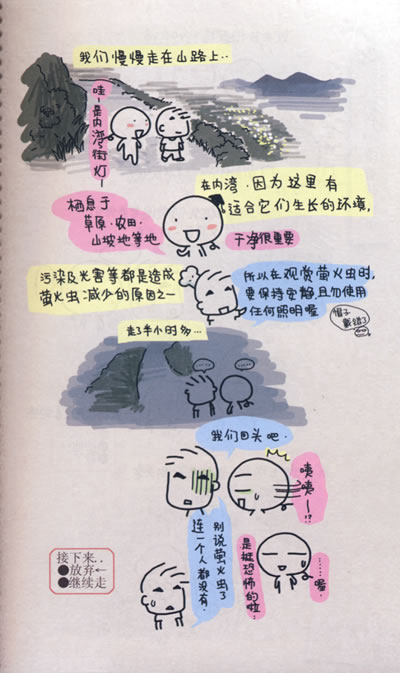 我们慢慢走在山路上..
哇~是内湾街灯~
在内湾.因为这里有
适合它们生长的环境,
栖息于
草原.农田.
山坡地等地
干净很重要
污染及光害等都是造成
萤火虫减少的原因之一
所以在观赏萤火虫时,
要保持安静,且勿使用
任何照明喔
帽子
戴错了
走了半小时多...
......
......
我们回头吧.
咦咦~!?
别说萤火虫了
连一个人都没有.
……喔.
是挺恐怖的啦.
接下来..
●放弃←
●继续走